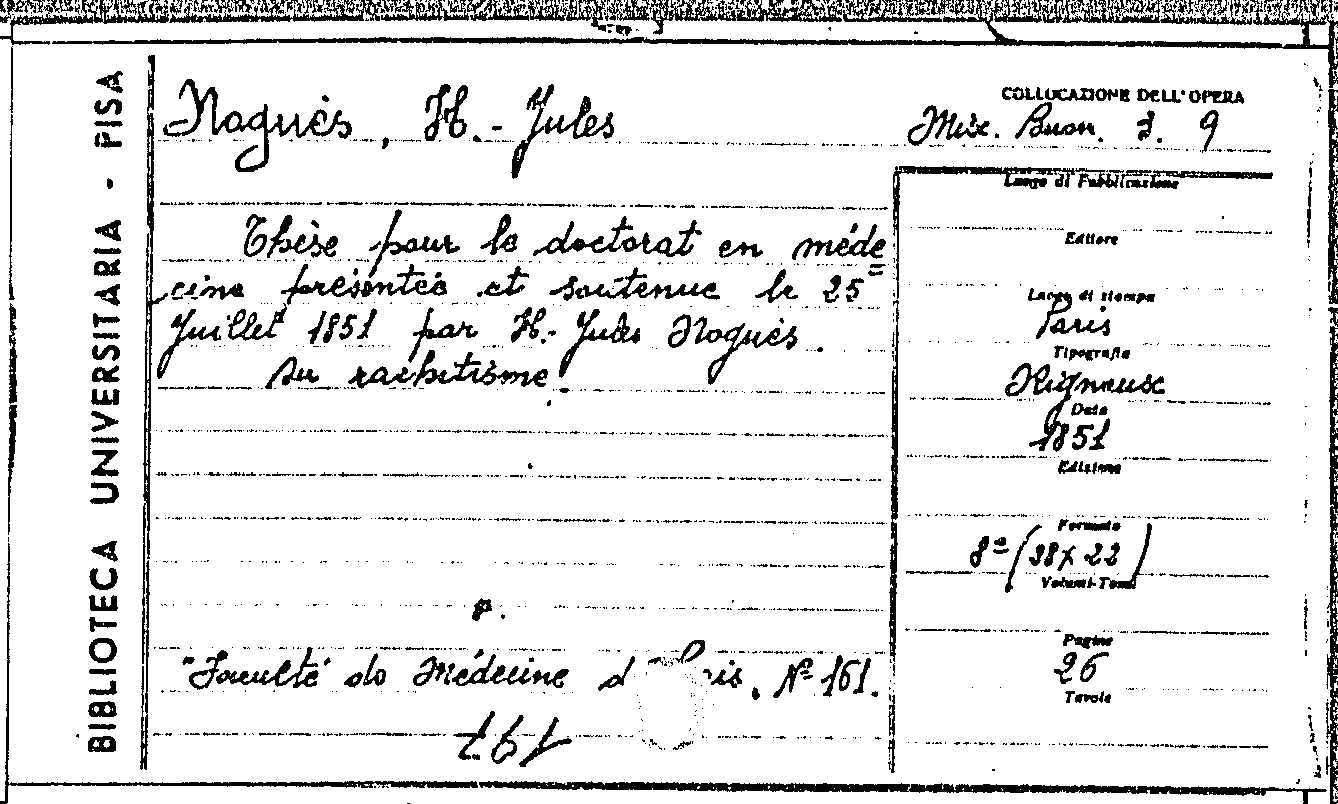 BIBLIOTECA UNIVERSITARIA - PISA
Noguès, H.- Jules
COLLOCAZIONE DELL'OPERA
Misc. Buon. 3. 9
Thèse pour le doctorat en méde=
cine présentée et soutenue le 25
Juillet 1851 par H.- Jules Noguès.
Du rachitisme.
Luogo di Pubblicazione
Editore
Luogo di stampa
Paris
Tipografia
Rignoux
Data
1851
Edizione
Formato
8º (28 x 22)
Volumi-Tomi
Pagine
26
Tavole
"Faculté de Médecine d ris. Nº 161.